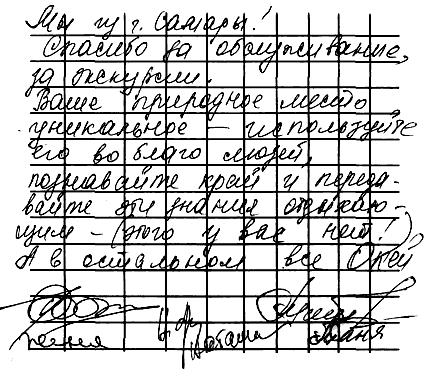 Мы из г. Самары!
Спасибо за обслуживание,
за экскурсии.
Ваше природное место
уникальное – используйте
его во благо людей,
познавайте край и переда-
вайте эти знания отдыхаю-
щим – (этого у вас нет!)
А в остальном все Окей
Наташа Таня